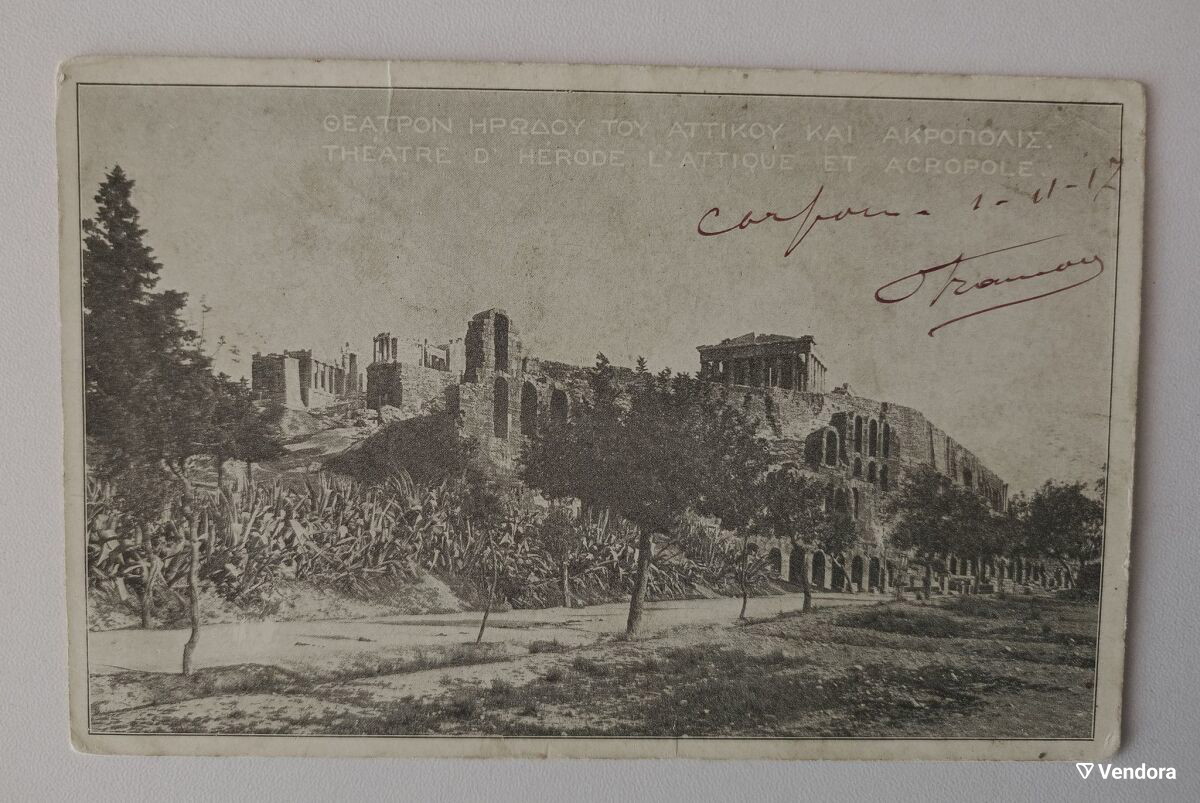 ΘΕΑΤΡΟΝ ΗΡΩΔΟΥ ΤΟΥ ΑΤΤΙΚΟΥ ΚΑΙ ΑΚΡΟΠΟΛΙΣ.
THEATRE D' HERODE L'ATTIQUE ET ACROPOLE.
Corfou - 1-11-17
Vendora